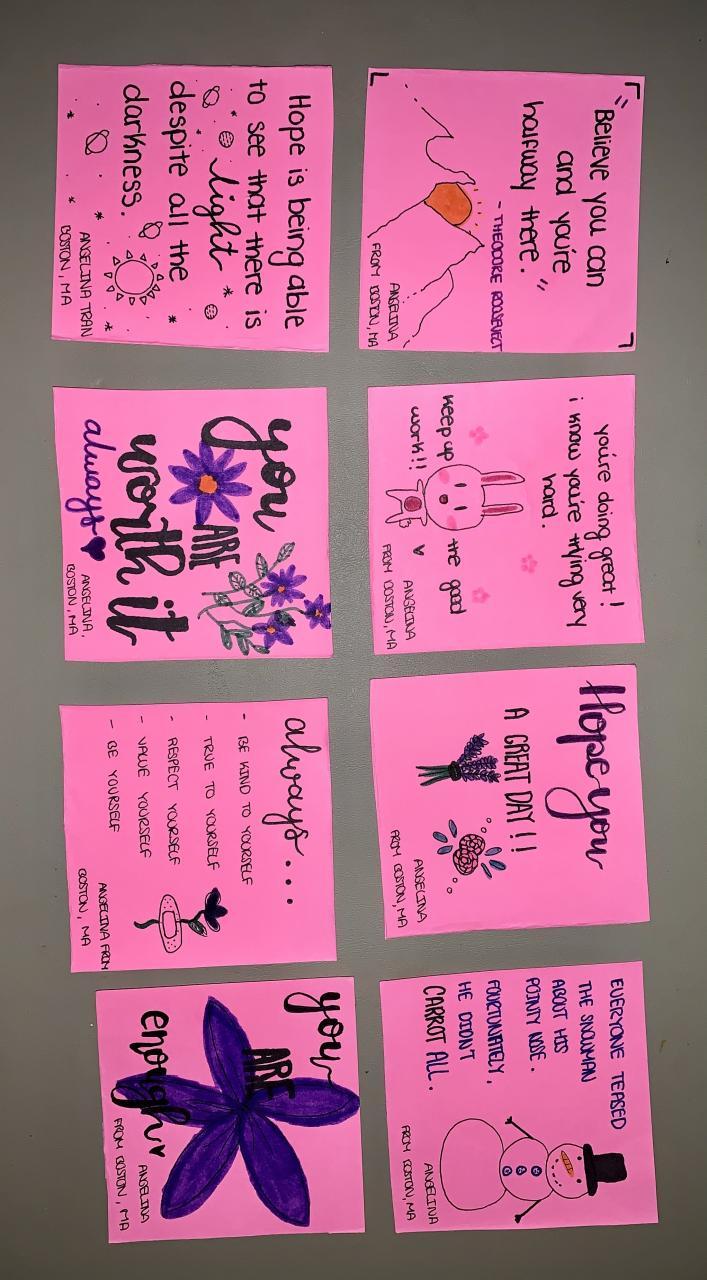 "Believe you can
and you're
halfway there."
- THEODORE ROOSEVELT
ANGELINA
FROM BOSTON, MA
you're doing great!
i know you're trying very
hard.
keep up the good
work!!
ANGELINA
FROM BOSTON, MA
Hope you
A GREAT DAY!!
ANGELINA
FROM BOSTON, MA
EVERYONE TEASED
THE SNOWMAN
ABOUT HIS
POINTY NOSE.
FOURTUNATELY,
HE DIDN'T
CARROT ALL.
ANGELINA
FROM BOSTON, MA
Hope is being able
to see that there is
light
despite all the
darkness.
ANGELINA TRAN
BOSTON, MA
you
ARE
worth it
always
ANGELINA,
BOSTON, MA
always...
- BE KIND TO YOURSELF
- TRUE TO YOURSELF
- RESPECT YOURSELF
- VALUE YOURSELF
- BE YOURSELF
ANGELINA FROM
BOSTON, MA
you
ARE
enough
ANGELINA
FROM BOSTON, MA